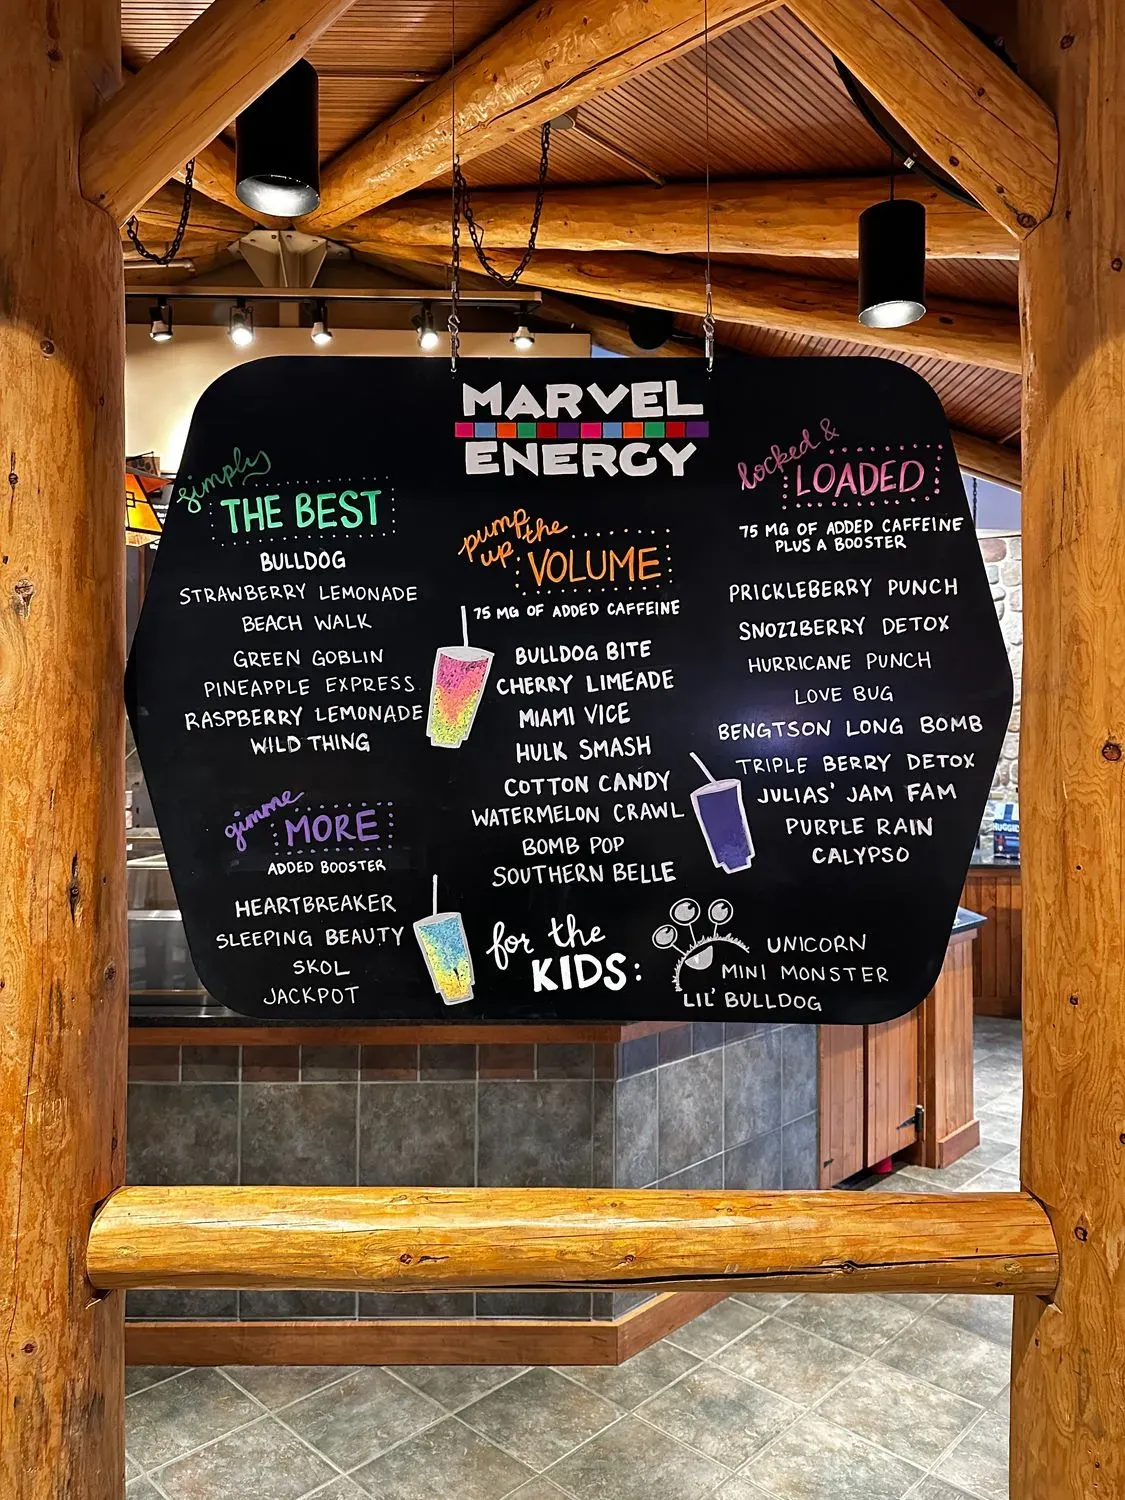 MARVEL
ENERGY
simply
THE BEST
BULLDOG
STRAWBERRY LEMONADE
BEACH WALK
GREEN GOBLIN
PINEAPPLE EXPRESS
RASPBERRY LEMONADE
WILD THING
gimme
MORE
ADDED BOOSTER
HEARTBREAKER
SLEEPING BEAUTY
SKOL
JACKPOT
pump
up the
VOLUME
75 MG OF ADDED CAFFEINE
BULLDOG BITE
CHERRY LIMEADE
MIAMI VICE
HULK SMASH
COTTON CANDY
WATERMELON CRAWL
BOMB POP
SOUTHERN BELLE
locked &
LOADED
75 MG OF ADDED CAFFEINE
PLUS A BOOSTER
PRICKLEBERRY PUNCH
SNOZZBERRY DETOX
HURRICANE PUNCH
LOVE BUG
BENGTSON LONG BOMB
TRIPLE BERRY DETOX
JULIAS' JAM FAM
PURPLE RAIN
CALYPSO
for the
KIDS:
UNICORN
MINI MONSTER
LIL' BULLDOG